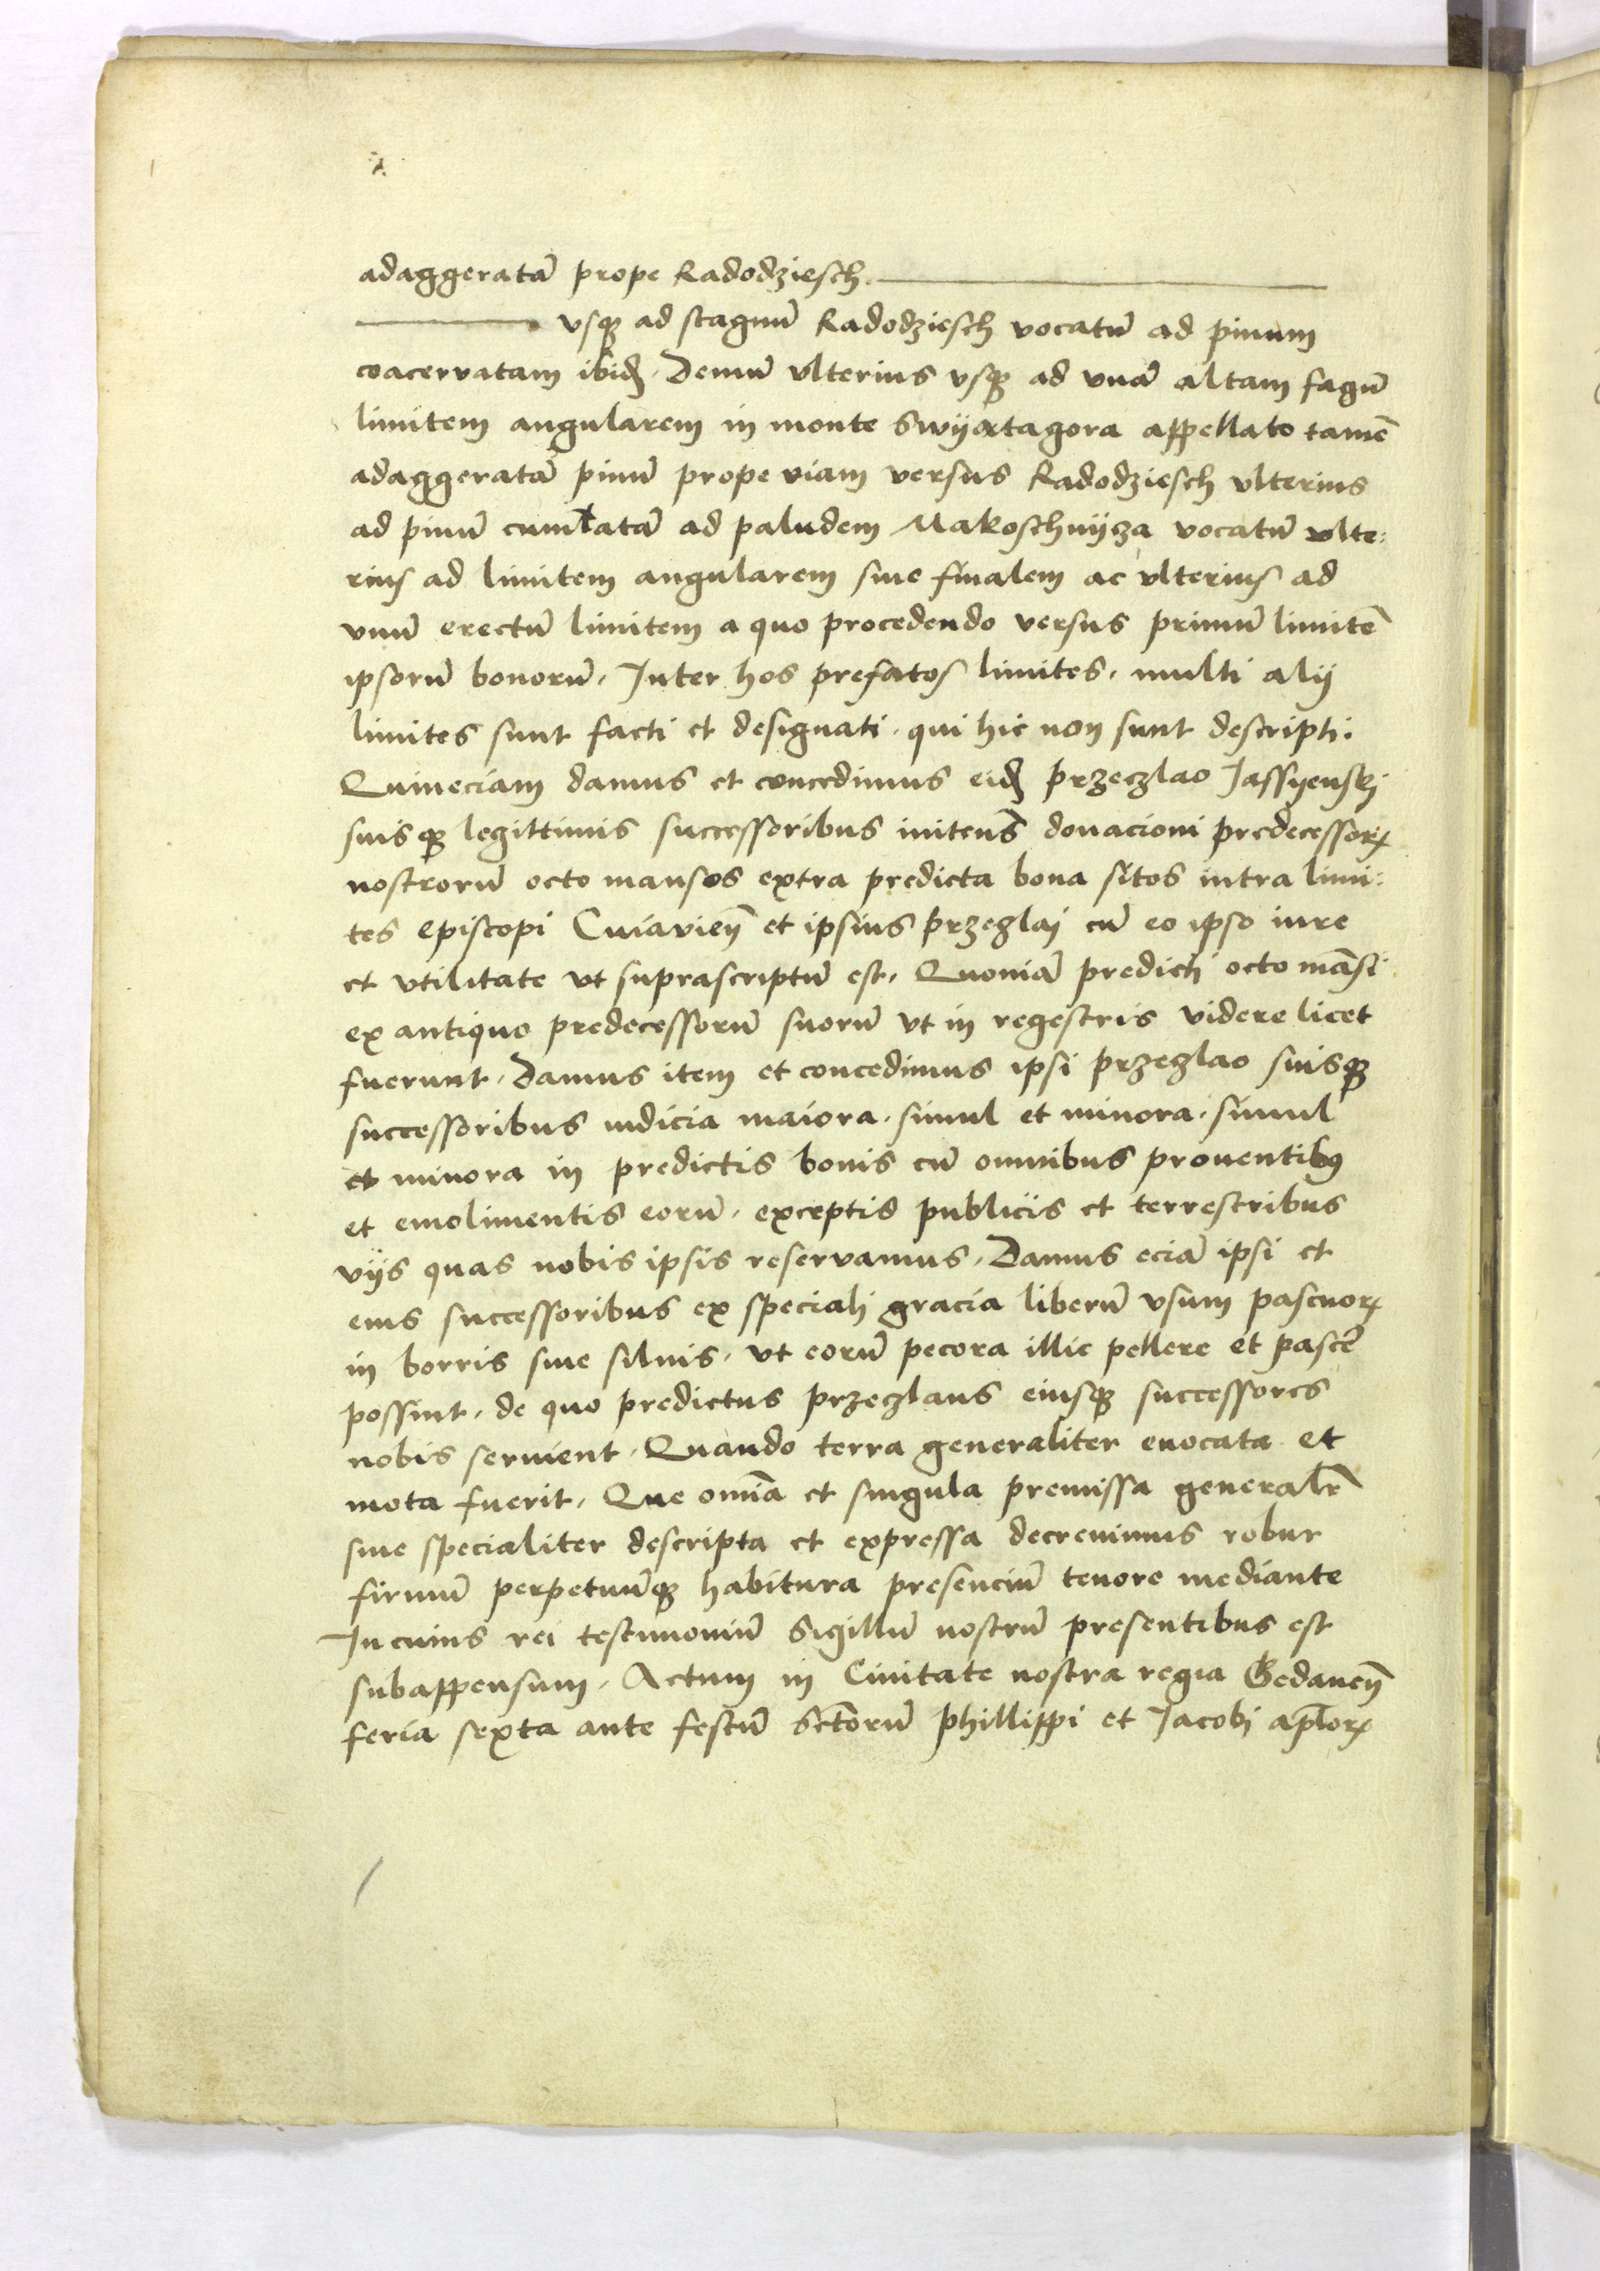 adaggeratā prope Radodziesch
vsqꝫ ad stagnū Radodziesch vocatū ad pinum
coacervatam ibidꝫ. Demū vlterius vsqꝫ ad vnā altam fagū
limitem angularem in monte Swÿatagora appellato tamē
adaggeratā pinū prope viam versus Radodziesch vlterius
ad pinū cumulatā ad paludem Makoschnÿza vocatū vlte:
rius ad limitem angularem siue finalem ac vlterius ad
vnū erectū limitem a quo procedendo versus primū limitē
ipsorū bonorū. Inter hos prefatos limites. multi alij
limites sunt facti et designati. qui hic non sunt descripti.
Quineciam damus et concedimus eidꝫ przeczlao Jassyenskj
suisqꝫ legittimis successoribus initens̄ donacioni predecessorꝝ
nostrorū octo mansos extra predicta bona sitos intra limi:
tes Episcopi Cuiavien̄ et ipsius przeczlaj cū eo ipso iure
et vtilitate vt suprascriptū est. Quoniā predicti octo māsi
ex antiquo predecessorū suorū vt in regestris videre licet
fuerunt. Damus item et concedimus ipsi przeczlao suisqꝫ
successoribus iudicia maiora. simul et minora. simul
et minora in predictis bonis cū omnibus prouentibꝯ
et emolimentis eorū. exceptis publicis et terrestribus
vijs quas nobis ipsis reservamus. Damus eciā ipsi et
eius successoribus ex speciali gracia liberū vsum pascuorꝝ
in borris siue siluis. vt eorū pecora illic pellere et pascē
possint. de quo predictus przeczlaus eiusqꝫ successores
nobis seruient. Quando terra generaliter euocata et
mota fuerit. Que omīa et singula premissa generalr̄
siue specialiter descripta et expressa decreuimus robur
firmū perpetuūqꝫ habitura presenciū tenore mediante
In cuius rei testimoniū Sigillū nostrū presentibus est
subappensum. Actum in Ciuitate nostra regia Gedanen̄
feria sexta ante festū Sctōrū Phillippi et Jacobi apl̄orꝝ